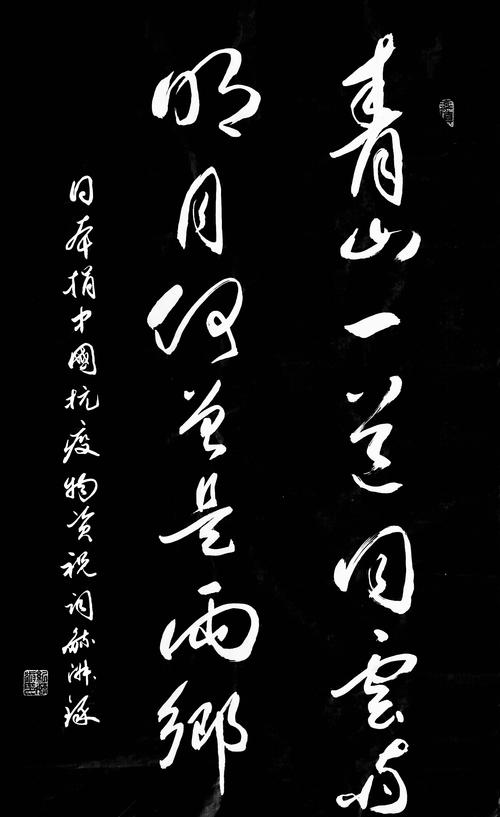 青山一道同雲雨
明月何曾是兩鄉
日本捐中國抗疫物资祝词